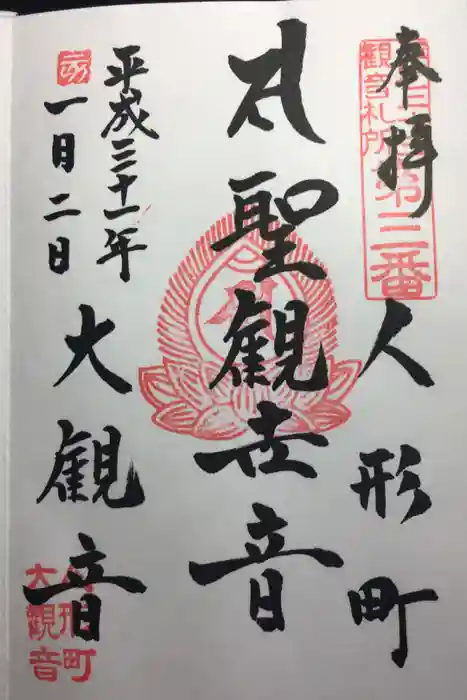 奉拝
人形町
聖観世音
平成三十一年
一月二日
大観音
観音札所
第三番
人形町
大観音